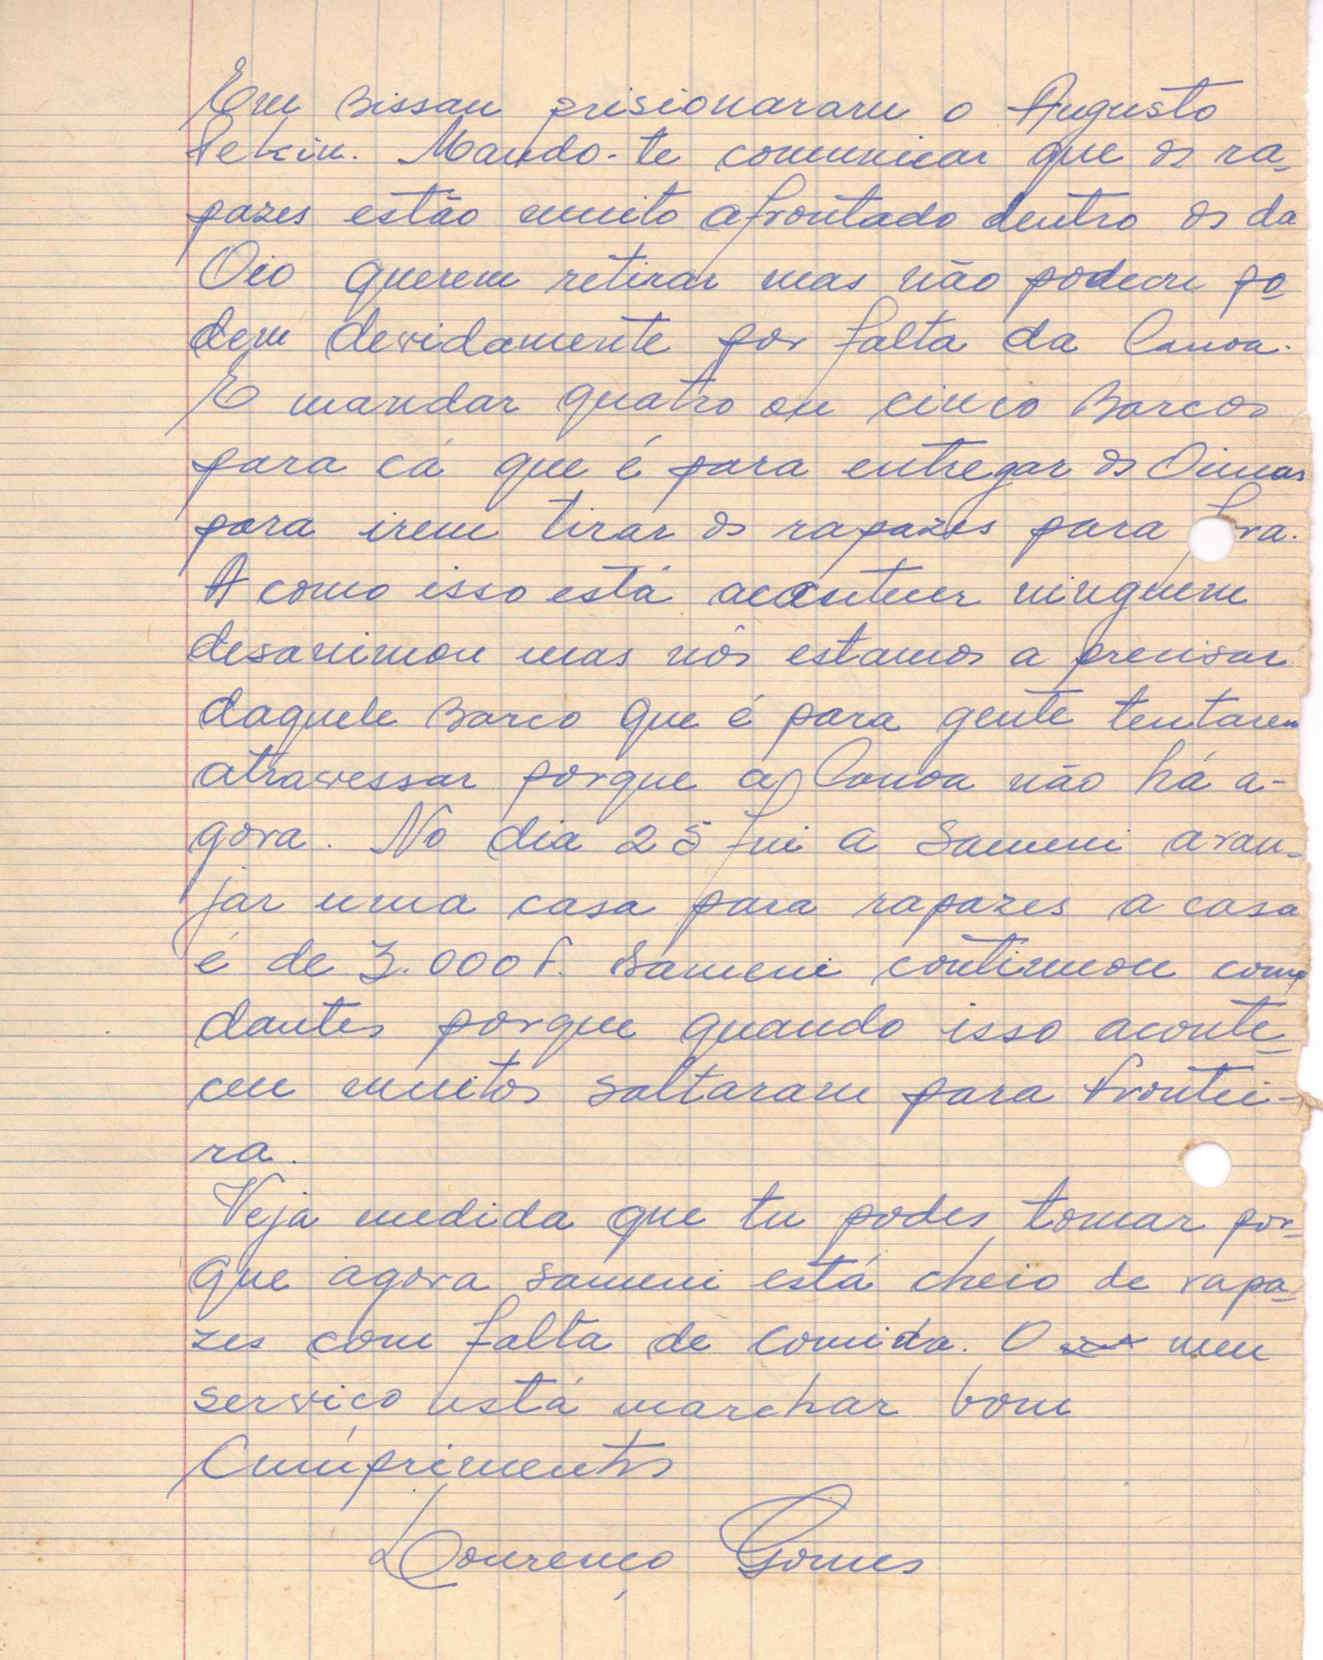 Em Bissau prisionararam o Augusto
Pekin. Mando-te comunicar que os ra-
pazes estão muito afrontado dentro os da
Oio querem retirar mas não podem po
dem devidamente por falta da Canoa.
E mandar quatro ou cinco Barcos
para cá que é para entregar os Oincas
para irem tirar os rapazes para fora.
A como isso está acontecer ninguem
desanimou mas nós estamos a precisar
daquele Barco que é para gente tentarem
atravessar porque a Canoa não há a-
gora. No dia 25 fui a Sameni aran-
jar uma casa para rapazes a casa
é de 3.000 f. Sameni continuou como
dantes porque quando isso aconte-
ceu muitos saltaram para frontei-
ra.
Veja medida que tu podes tomar por-
que agora Sameni está cheio de rapa-
zes com falta de comida. O meu
serviço está marchar bom
Cumprimentos
Lourenço Gomes